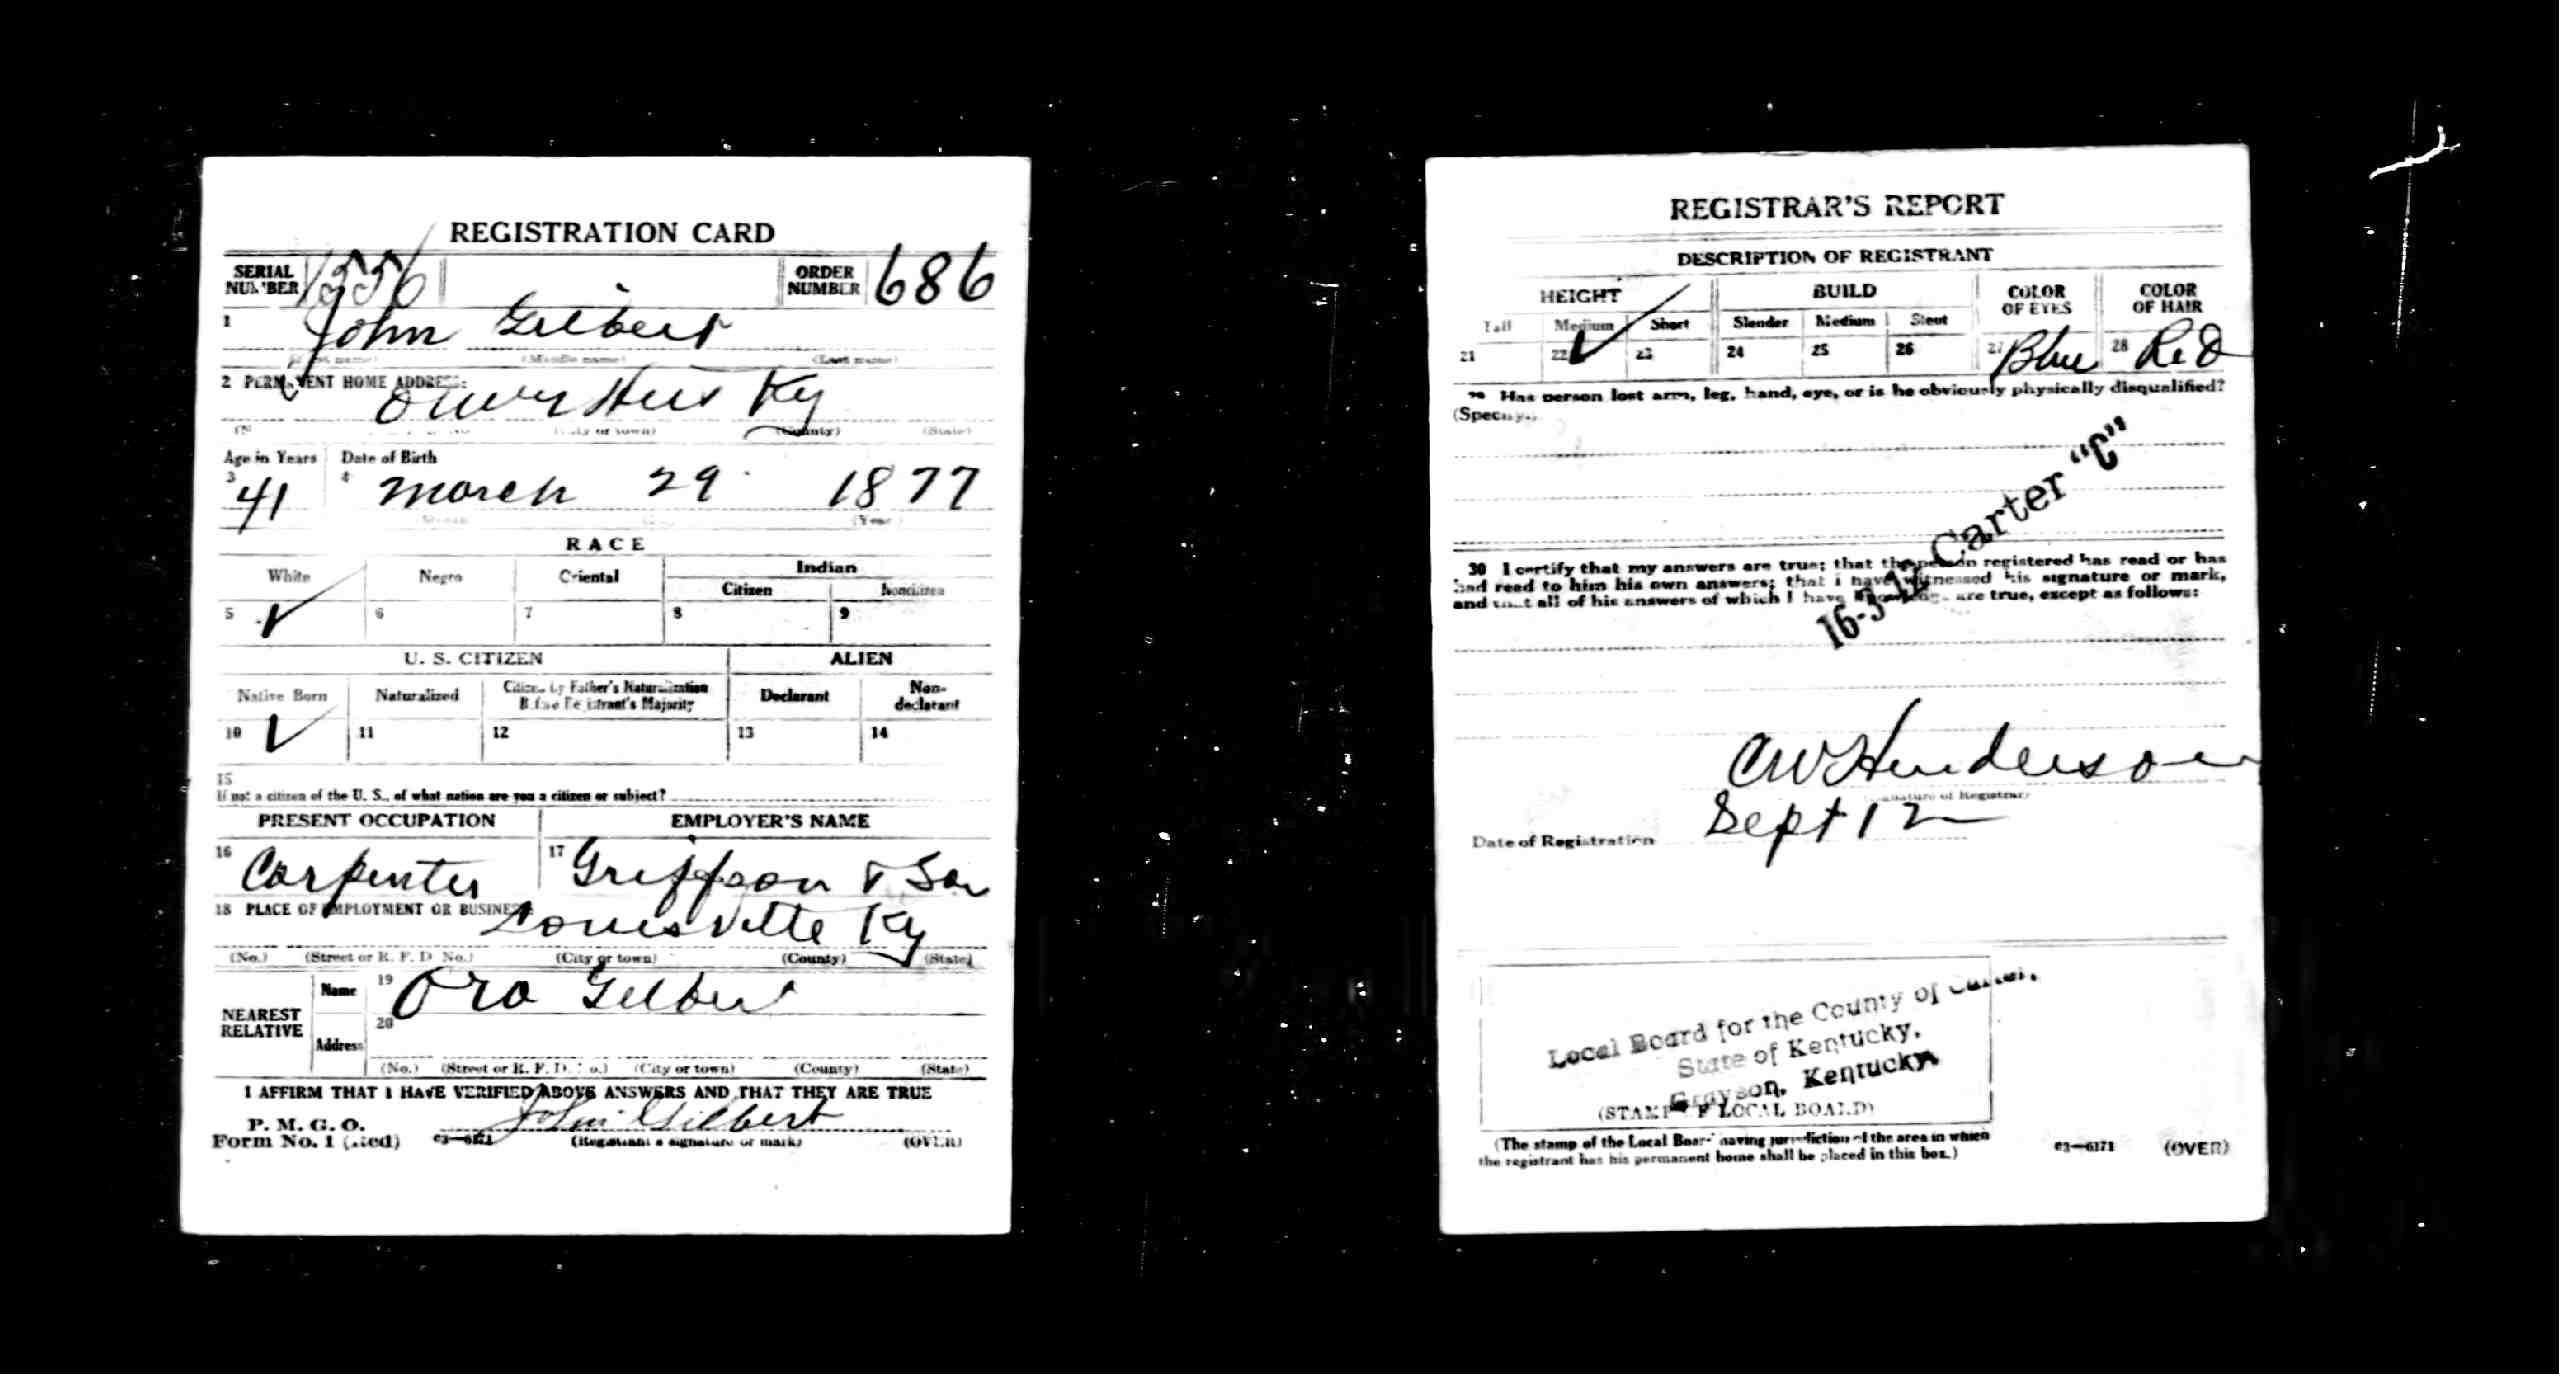 REGISTRATION CARD
SERIAL NUMBER 1556 ORDER NUMBER 686
1 John Gilbert
(First name) (Middle name) (Last name)
2 PERMANENT HOME ADDRESS:
Olive Hill Ky
(City or town) (County) (State)
Age in Years Date of Birth
3 41 4 March 29 1877
(Month) (Year)
RACE
White Negro Oriental Indian
Citizen Noncitizen
5 ✓ 6 7 8 9
U. S. CITIZEN ALIEN
Native Born Naturalized Citizen by Father's Naturalization Before Registrant's Majority Declarant Non-declarant
10 ✓ 11 12 13 14
15
If not a citizen of the U. S., of what nation are you a citizen or subject?
PRESENT OCCUPATION EMPLOYER'S NAME
16 Carpenter 17 Griffson & Son
18 PLACE OF EMPLOYMENT OR BUSINESS
Louisville Ky
(No.) (Street or R. F. D. No.) (City or town) (County) (State)
NEAREST RELATIVE
Name 19 Ora Gilbert
Address 20
(No.) (Street or R. F. D. No.) (City or town) (County) (State)
I AFFIRM THAT I HAVE VERIFIED ABOVE ANSWERS AND THAT THEY ARE TRUE
P. M. G. O.
Form No. 1 (Red) 03—6171 John Gilbert
(Registrant's signature or mark) (OVER)
REGISTRAR'S REPORT
DESCRIPTION OF REGISTRANT
HEIGHT BUILD COLOR OF EYES COLOR OF HAIR
Tall Medium Short Slender Medium Stout
21 22 ✓ 23 24 25 26 27 Blue 28 Red
29 Has person lost arm, leg, hand, eye, or is he obviously physically disqualified?
(Specify.)
16-3-12 Carter "C"
30 I certify that my answers are true; that the person registered has read or has
had read to him his own answers; that I have witnessed his signature or mark,
and that all of his answers of which I have knowledge are true, except as follows:
CW Henderson
(Signature of Registrar)
Date of Registration Sept 12
Local Board for the County of Carter,
State of Kentucky.
Grayson, Kentucky.
(STAMP OF LOCAL BOARD)
(The stamp of the Local Board having jurisdiction of the area in which
the registrant has his permanent home shall be placed in this box.)
03—6171 (OVER)